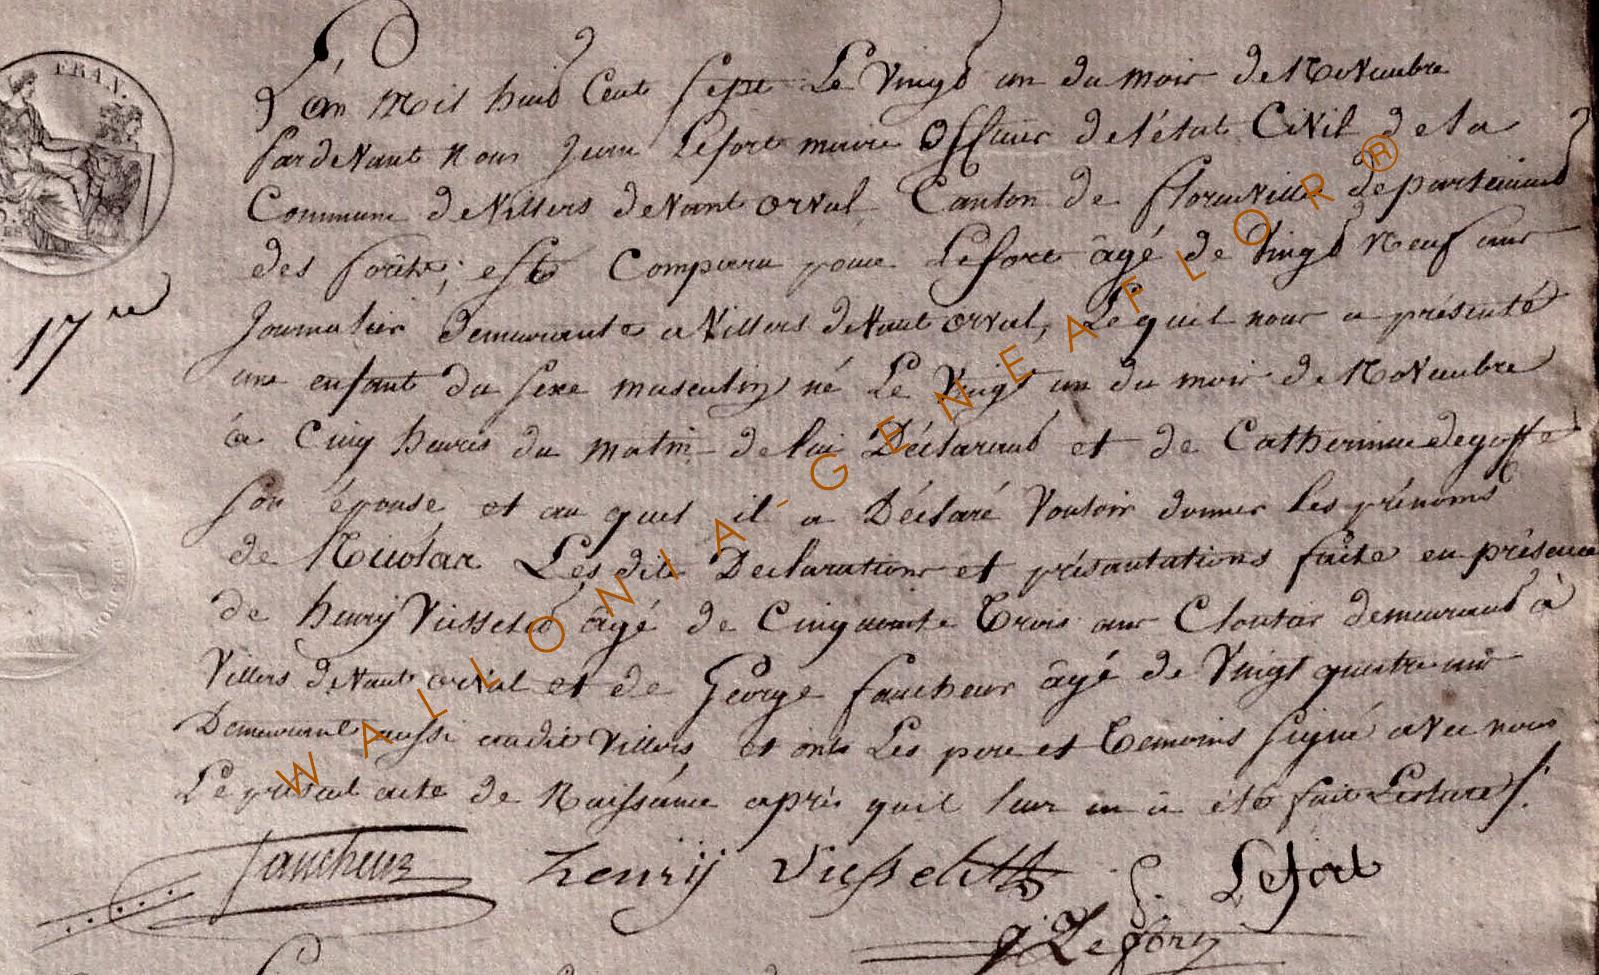 FRAN.
L'an Mil huid Cent Sept Le Vingd un du mois de Novembre
Pardevant nous Jean Lefort maire Officier de l'état Civil de la
Commune de Villers devant orval Canton de florenville departement
des forêts; est Comparu Lefort âgé de Vingd Neuf ans
Journalier demeurante a Villers devant orval, Lequel nous a présenté
une enfant du sexe masculin né Le Vingt un du mois de Novembre
à Cinq heures du matin de lui Déclarand et de Catherinne degoffe
son épouse et au quel il a Déclaré Vouloir donner les prénoms
de Nicolas Les dite Declarations et présantations faite en présence
de henrij Viesselet âgé de Cinquante Trois ans Cloutier demeurand à
Villers devant orval et de George faucheur âgé de Vingt quatre ans
Demeurant aussi audit Villers, et onts Les pere et Temoins signé avec nous
Le présent acte de Naissance après quil leur en a été fait Lecture
17me
faucheur henrij Viesselet Lefort
J Lefort
WALLONIA-GENEAFLOR®